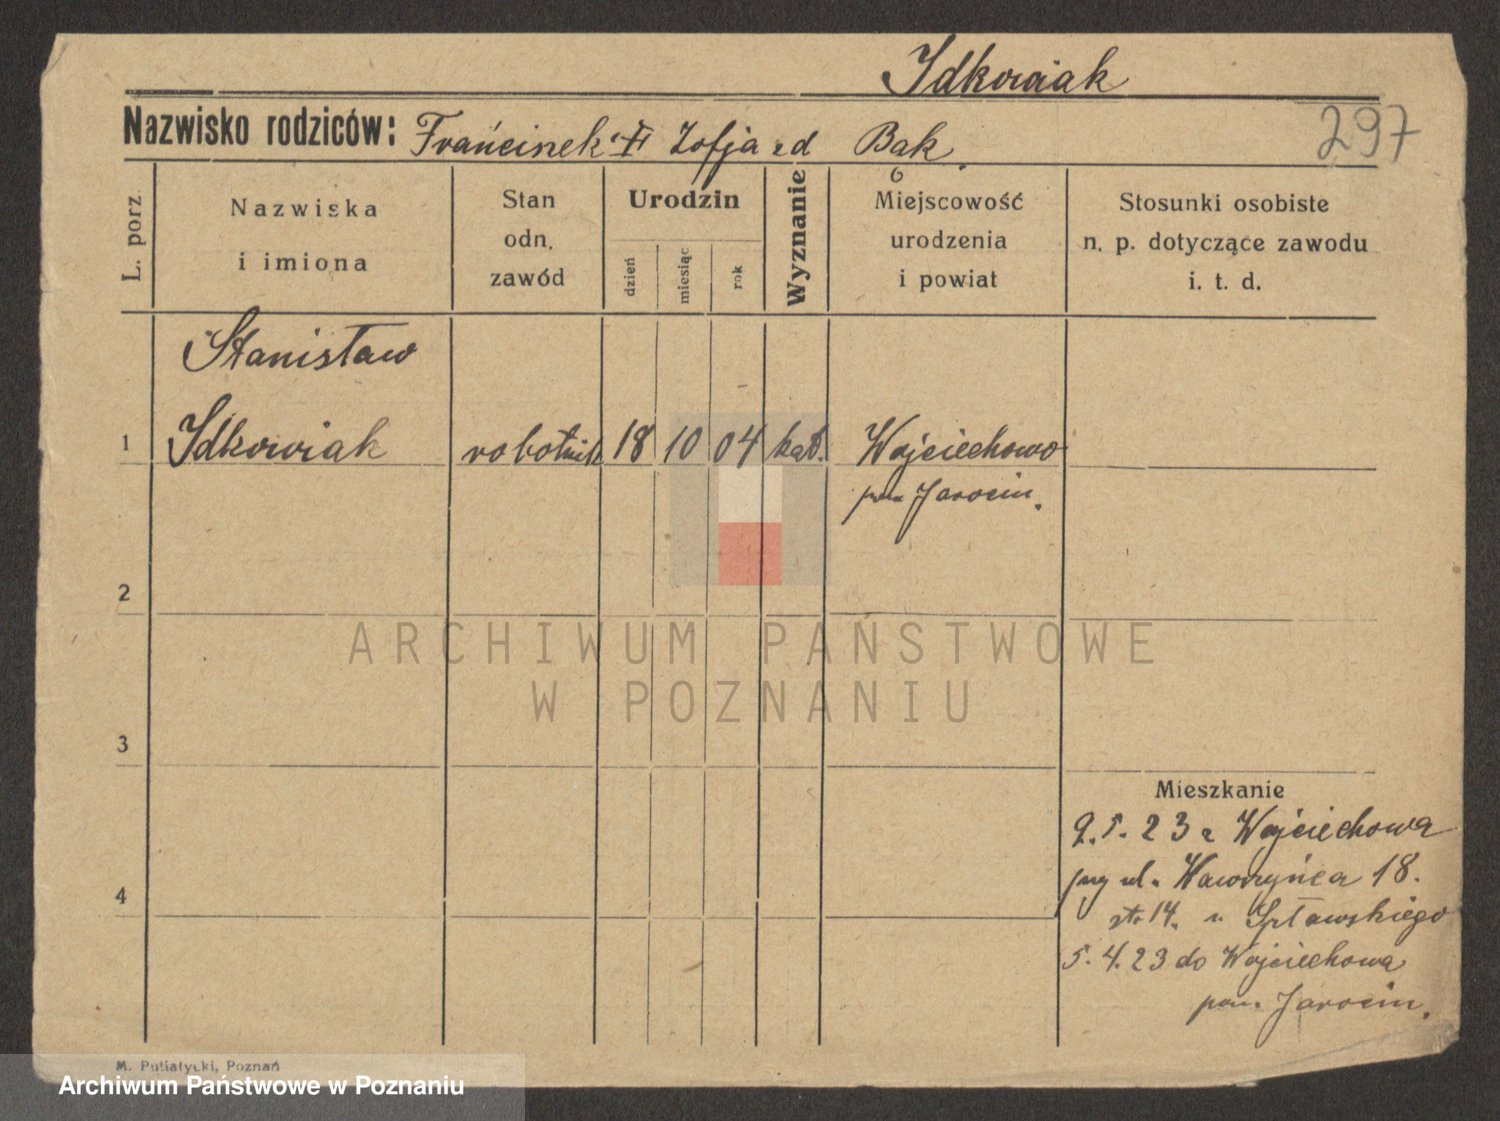 Idkowiak
Nazwisko rodziców: Zofja Bąk
297
L. porz
Nazwiska
i imiona
Stan
odn.
zawód
Urodzin
dzień
miesiąc
rok
Wyznanie
Miejscowość
urodzenia
i powiat
Stosunki osobiste
n. p. dotyczące zawodu
i. t. d.
Stanisław
1 Idkowiak robotnik 18 10 04 kat. Wojciechowo
pow. Jarocin.
2
3
4
ARCHIWUM PAŃSTWOWE
W POZNANIU
Mieszkanie
9. 5. 23 z Wojciechowa
przy ul. Wawrzyńca 18.
str 14. u. Spławskiego
5. 4. 23 do Wojciechowa
pow. Jarocin.
M. Putiatycki, Poznań
Archiwum Państwowe w Poznaniu